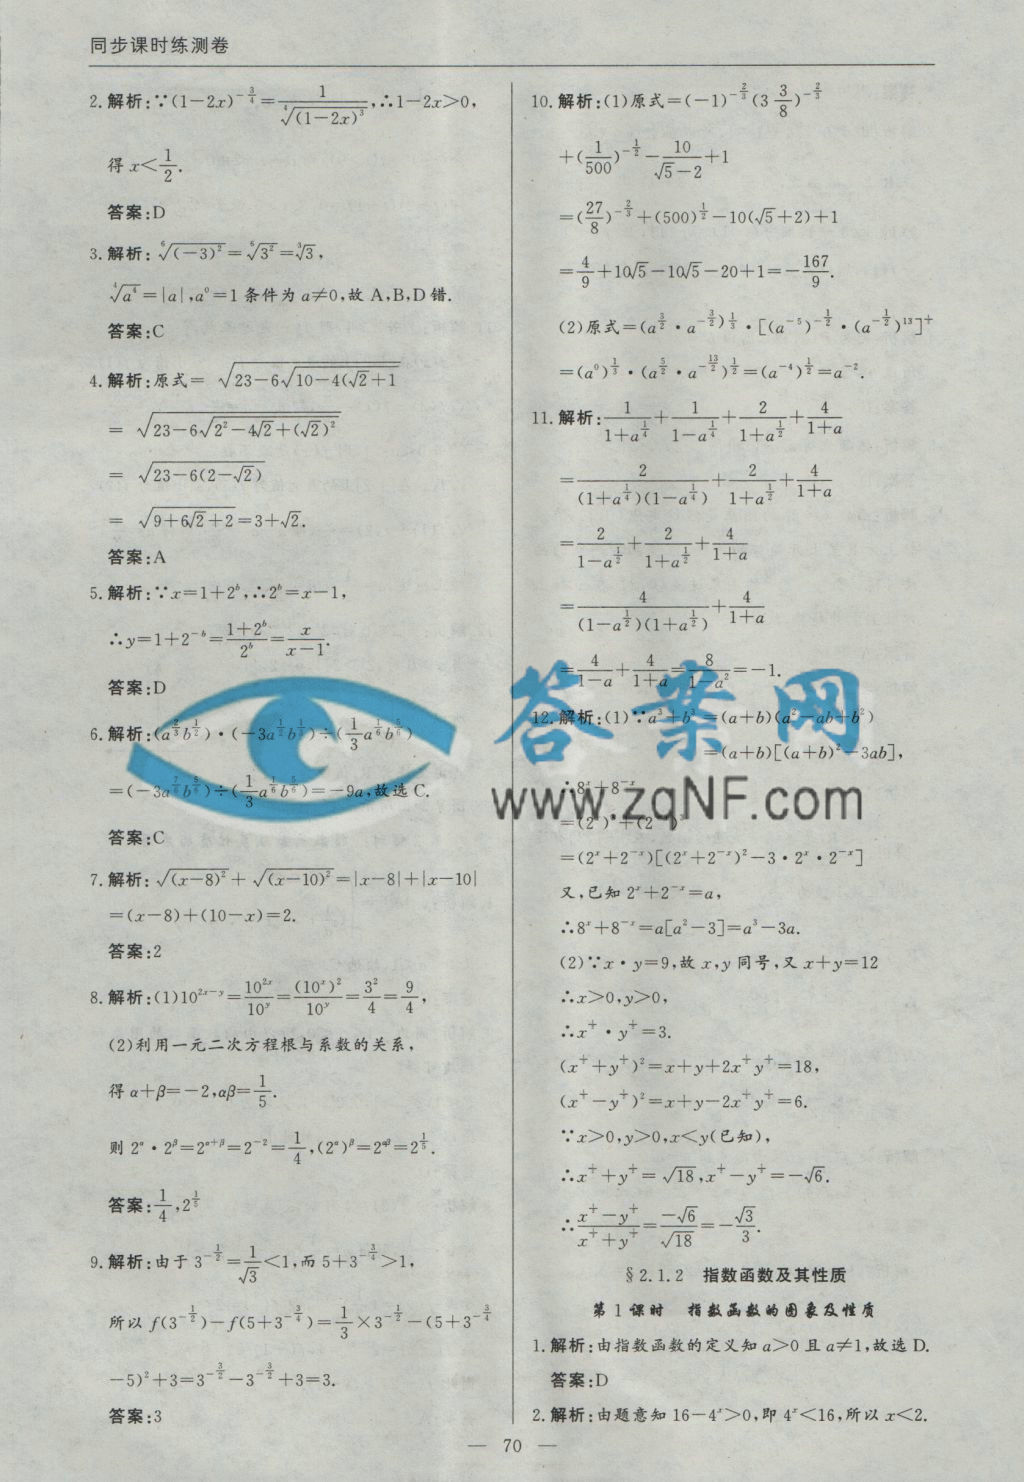 同步课时练测卷
2.解析:∵(1-2x)^{-3/4}=1/⁴√(1-2x)³,∴1-2x>0,
得 x<1/2.
答案:D
3.解析:⁶√(-3)²=⁶√3²=³√3,
⁴√a⁴=|a|,a⁰=1条件为a≠0,故A,B,D错.
答案:C
4.解析:原式=√(23-6√(10-4(√2+1
=√(23-6√(2²-4√2+(√2)²
=√(23-6(2-√2)
=√(9+6√2+2=3+√2.
答案:A
5.解析:∵x=1+2^b,∴2^b=x-1,
∴y=1+2^{-b}=(1+2^b)/2^b=x/(x-1).
答案:D
6.解析:(a^{2/3}b^{1/2})·(-3a^{1/2}b^{1/3})÷(1/3 a^{1/6}b^{5/6})
=(-3a^{7/6}b^{5/6})÷(1/3 a^{1/6}b^{5/6})=-9a,故选C.
答案:C
7.解析:√(x-8)²+√(x-10)²=|x-8|+|x-10|
=(x-8)+(10-x)=2.
答案:2
8.解析:(1)10^{2x-y}=10^{2x}/10^y=(10^x)²/10^y=3²/4=9/4,
(2)利用一元二次方程根与系数的关系,
得 α+β=-2,αβ=1/5.
则 2^α·2^β=2^{α+β}=2^{-2}=1/4,(2^α)^β=2^{αβ}=2^{1/5}.
答案:1/4,2^{1/5}
9.解析:由于 3^{-1/2}=1/√3<1,而 5+3^{-3/4}>1,
所以 f(3^{-1/2})-f(5+3^{-3/4})=1/3×3^{-1/2}-(5+3^{-3/4}
-5)²+3=3^{-3/2}-3^{-3/2}+3=3.
答案:3
10.解析:(1)原式=(-1)^{-2/3}(3 3/8)^{-2/3}
+(1/500)^{-1/2}-10/(√5-2)+1
=(27/8)^{-2/3}+(500)^{1/2}-10(√5+2)+1
=4/9+10√5-10√5-20+1=-167/9.
(2)原式=(a^{3/2}·a^{-3/2})^{1/3}·[(a^{-5})^{-1/2}·(a^{-1/2})^{13}]^+
=(a⁰)^{1/3}·(a^{5/2}·a^{-13/2})^{1/2}=(a^{-4})^{1/2}=a^{-2}.
11.解析:1/(1+a^{1/4})+1/(1-a^{1/4})+2/(1+a^{1/2})+4/(1+a)
=2/((1+a^{1/4})(1-a^{1/4}))+2/(1+a^{1/2})+4/(1+a)
=2/(1-a^{1/2})+2/(1+a^{1/2})+4/(1+a)
=4/((1-a^{1/2})(1+a^{1/2}))+4/(1+a)
=4/(1-a)+4/(1+a)=8/(1-a²)=-1.
12.解析:(1)∵a³+b³=(a+b)(a²-ab+b²)
=(a+b)[(a+b)²-3ab],
∴8^x+8^{-x}
=(2^x)³+(2^{-x})³
=(2^x+2^{-x})[(2^x+2^{-x})²-3·2^x·2^{-x}]
又,已知 2^x+2^{-x}=a,
∴8^x+8^{-x}=a[a²-3]=a³-3a.
(2)∵x·y=9,故 x,y 同号,又 x+y=12
∴x>0,y>0,
∴x^+·y^+=3.
(x^++y^+)²=x+y+2x^+y^+=18,
(x^+-y^+)²=x+y-2x^+y^+=6.
∵x>0,y>0,x<y(已知),
∴x^++y^+=√18,x^+-y^+=-√6.
∴(x^+-y^+)/(x^++y^+)=-√6/√18=-√3/3.
§2.1.2 指数函数及其性质
第1课时 指数函数的图象及性质
1.解析:由指数函数的定义知 a>0 且 a≠1,故选 D.
答案:D
2.解析:由题意知 16-4^x>0,即 4^x<16,所以 x<2.
— 70 —
答案网
www.zqNF.com